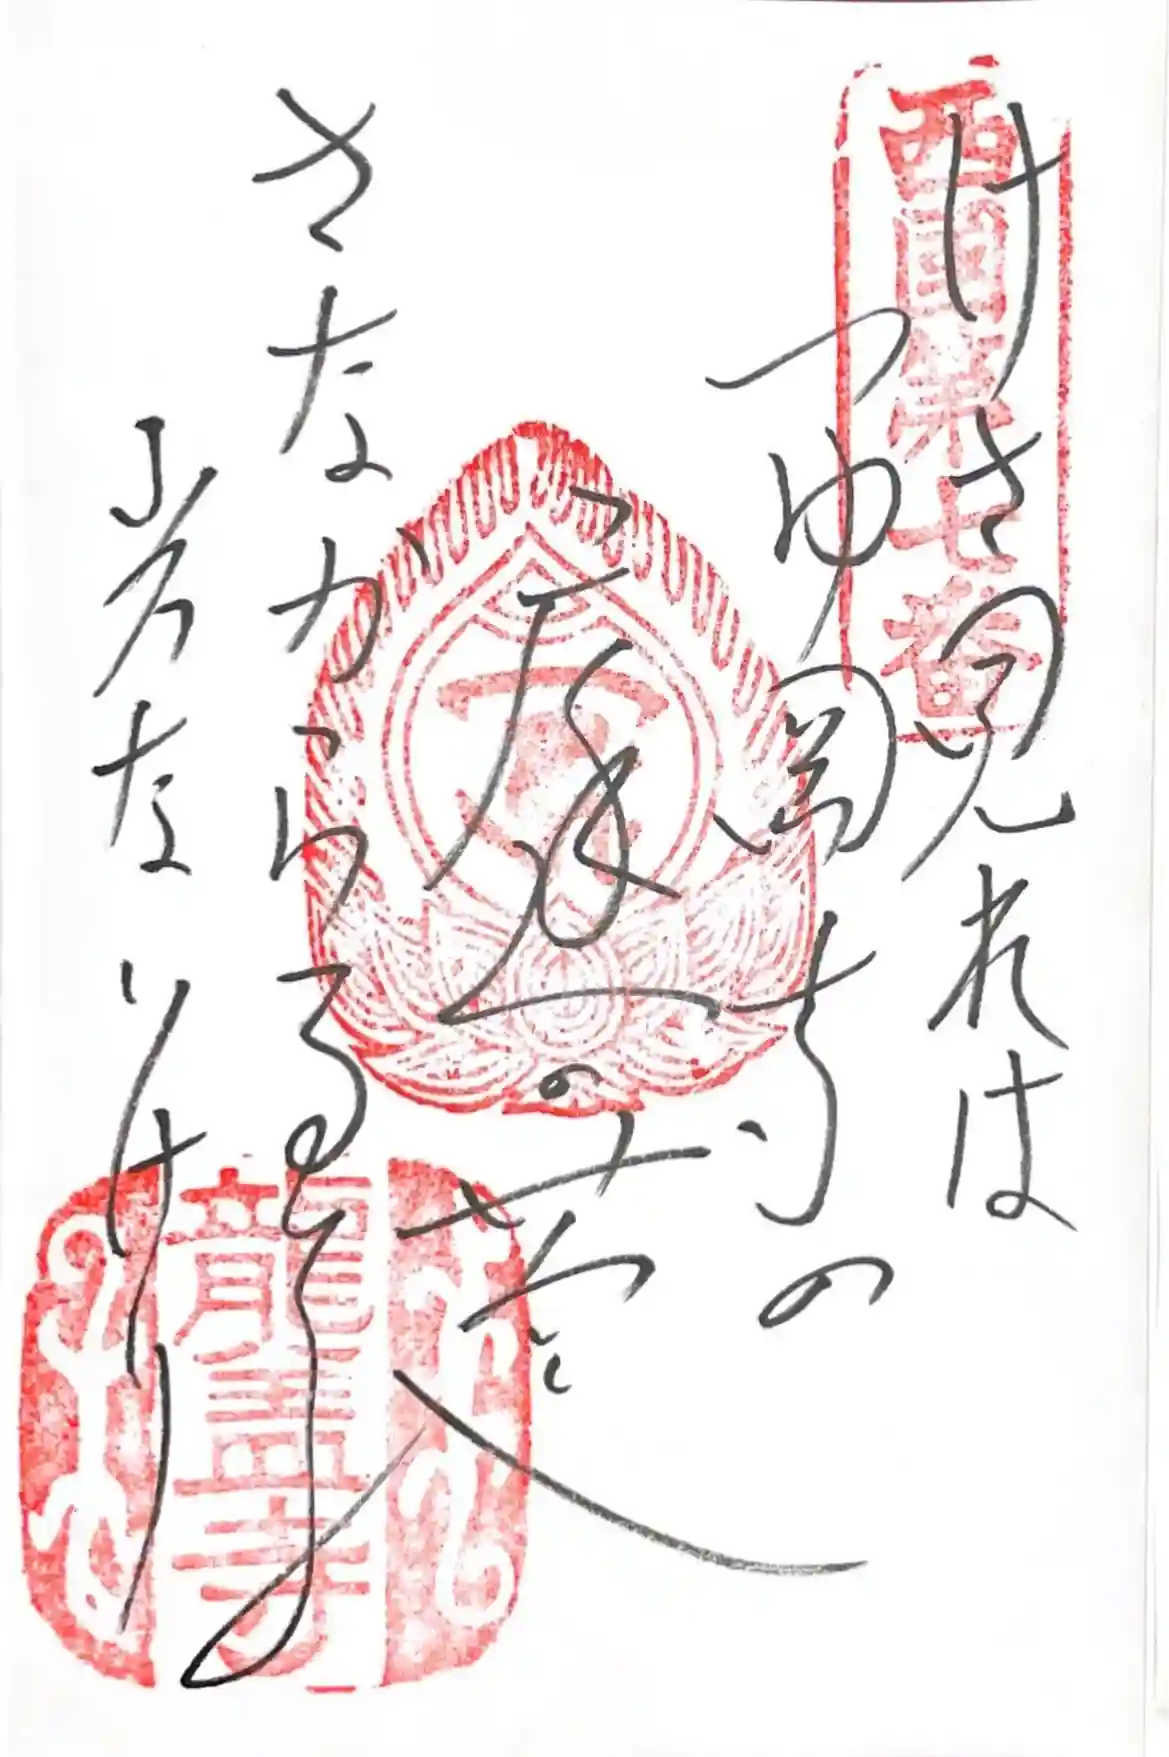 西国第七番
けさ見れは
つゆ岡寺の
庭の苔
さなからるりの
光なりけり
龍蓋寺